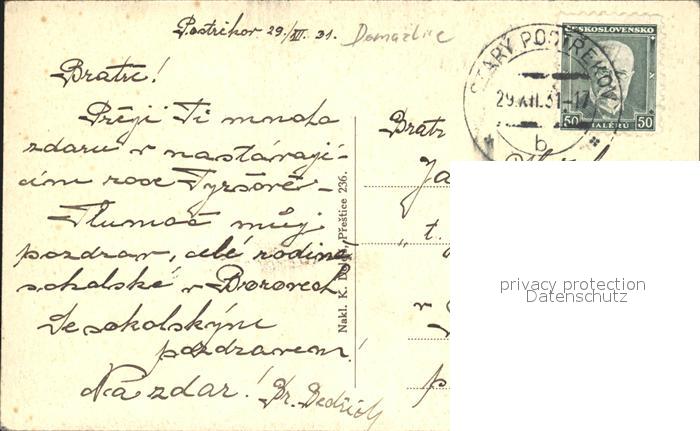 Postřekov 29./XII. 31. Domažlice
Bratře!
Přeji Ti mnoho
zdaru v nastávají-
cím roce Tyršově –
Tlumoč můj
pozdrav, celé rodině
sokolské v Borovech
Se sokolským
pozdravem!
Na zdar! Br.
Nakl. K. Přeštice 236.
Bratr
Ja
" t.
v
p
ČESKOSLOVENSKO
50 HALÉŘŮ 50
STARÝ POSTŘEKOV
29.XII.31-17
b
privacy protection
Datenschutz